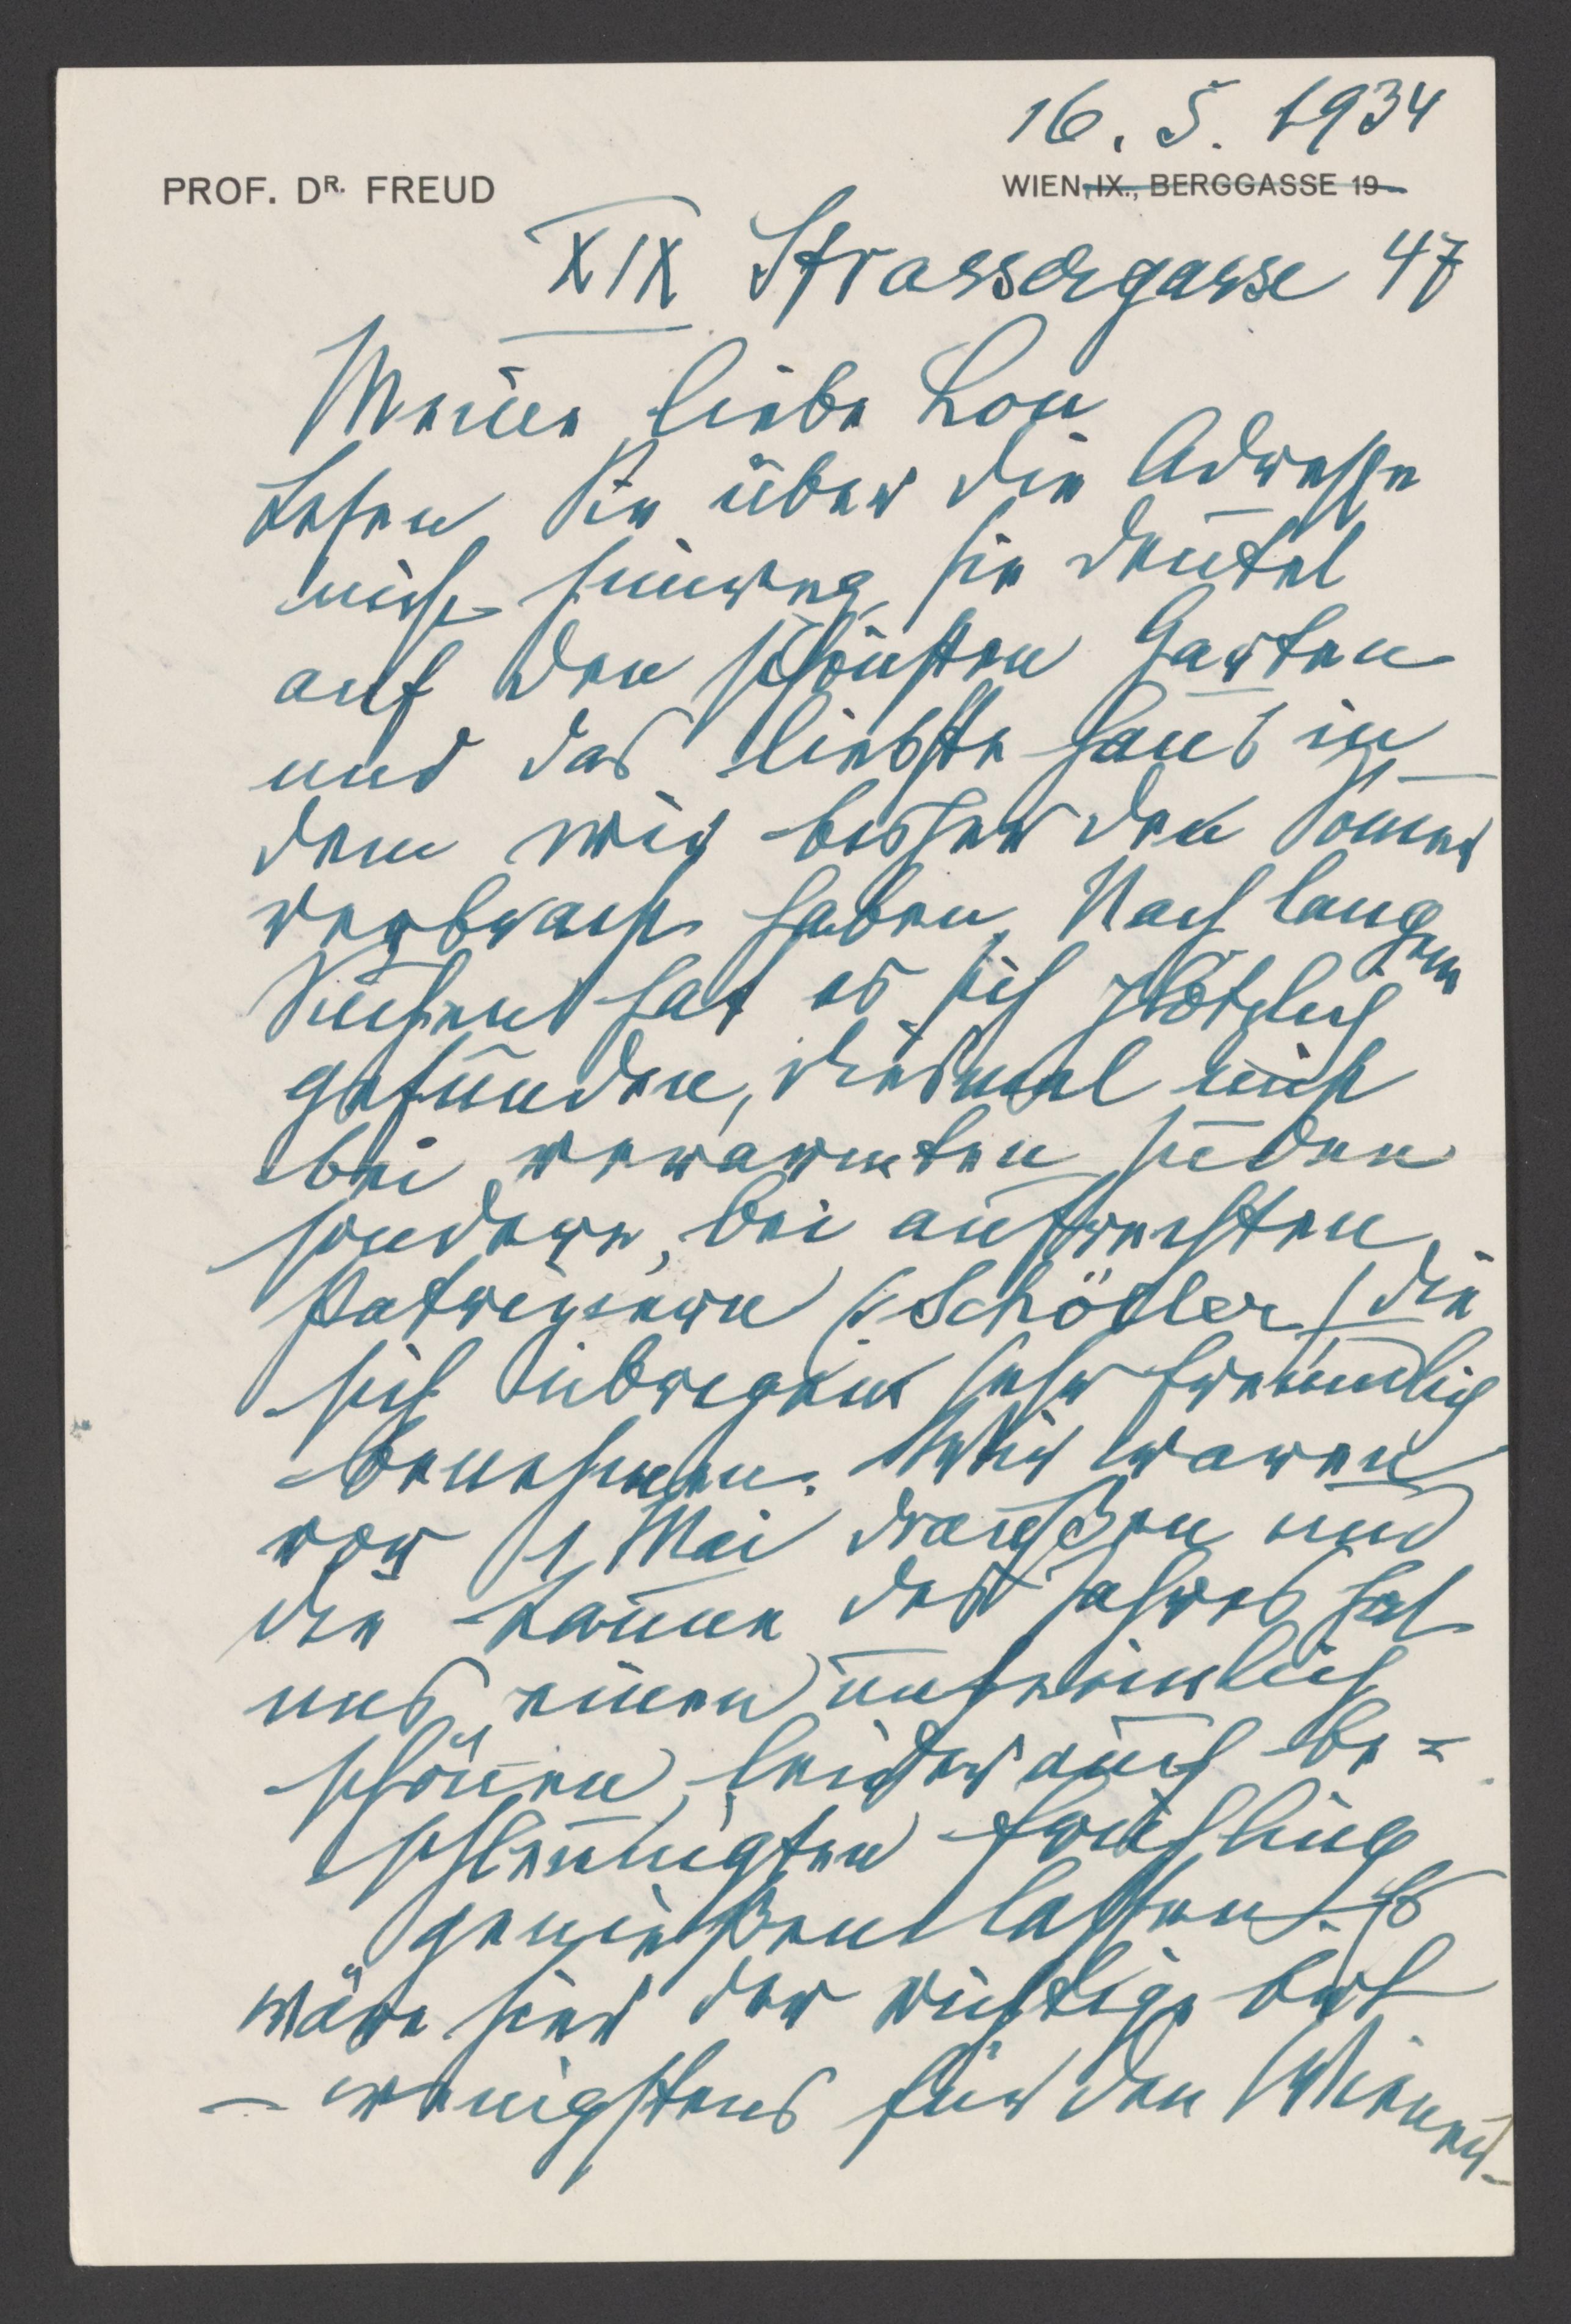 16. 5. 1934
PROF. DR. FREUD WIEN, IX., BERGGASSE 19
XIX Strassergasse 47
Meine liebe Lou
Lesen Sie über die Adresse
nicht hinweg, sie deutet
auf den schönsten Garten
und das liebste Haus in
dem wir bisher den Sommer
verbracht haben. Nach langem
Suchen hat es sich plötzlich
gefunden, diesmal nicht
bei verarmten Juden
sondern bei aufrechten
Patriziern (Schöller) die
sich übrigens sehr freundlich
benehmen. Wir waren
vor 1 Mai draußen und
die Laune des Jahres hat
uns einen unheimlich
schönen, leider auch be=
schleunigten Frühling
genießen lassen. Es
wäre hier der richtige Ort
– wenigstens für den Wiener